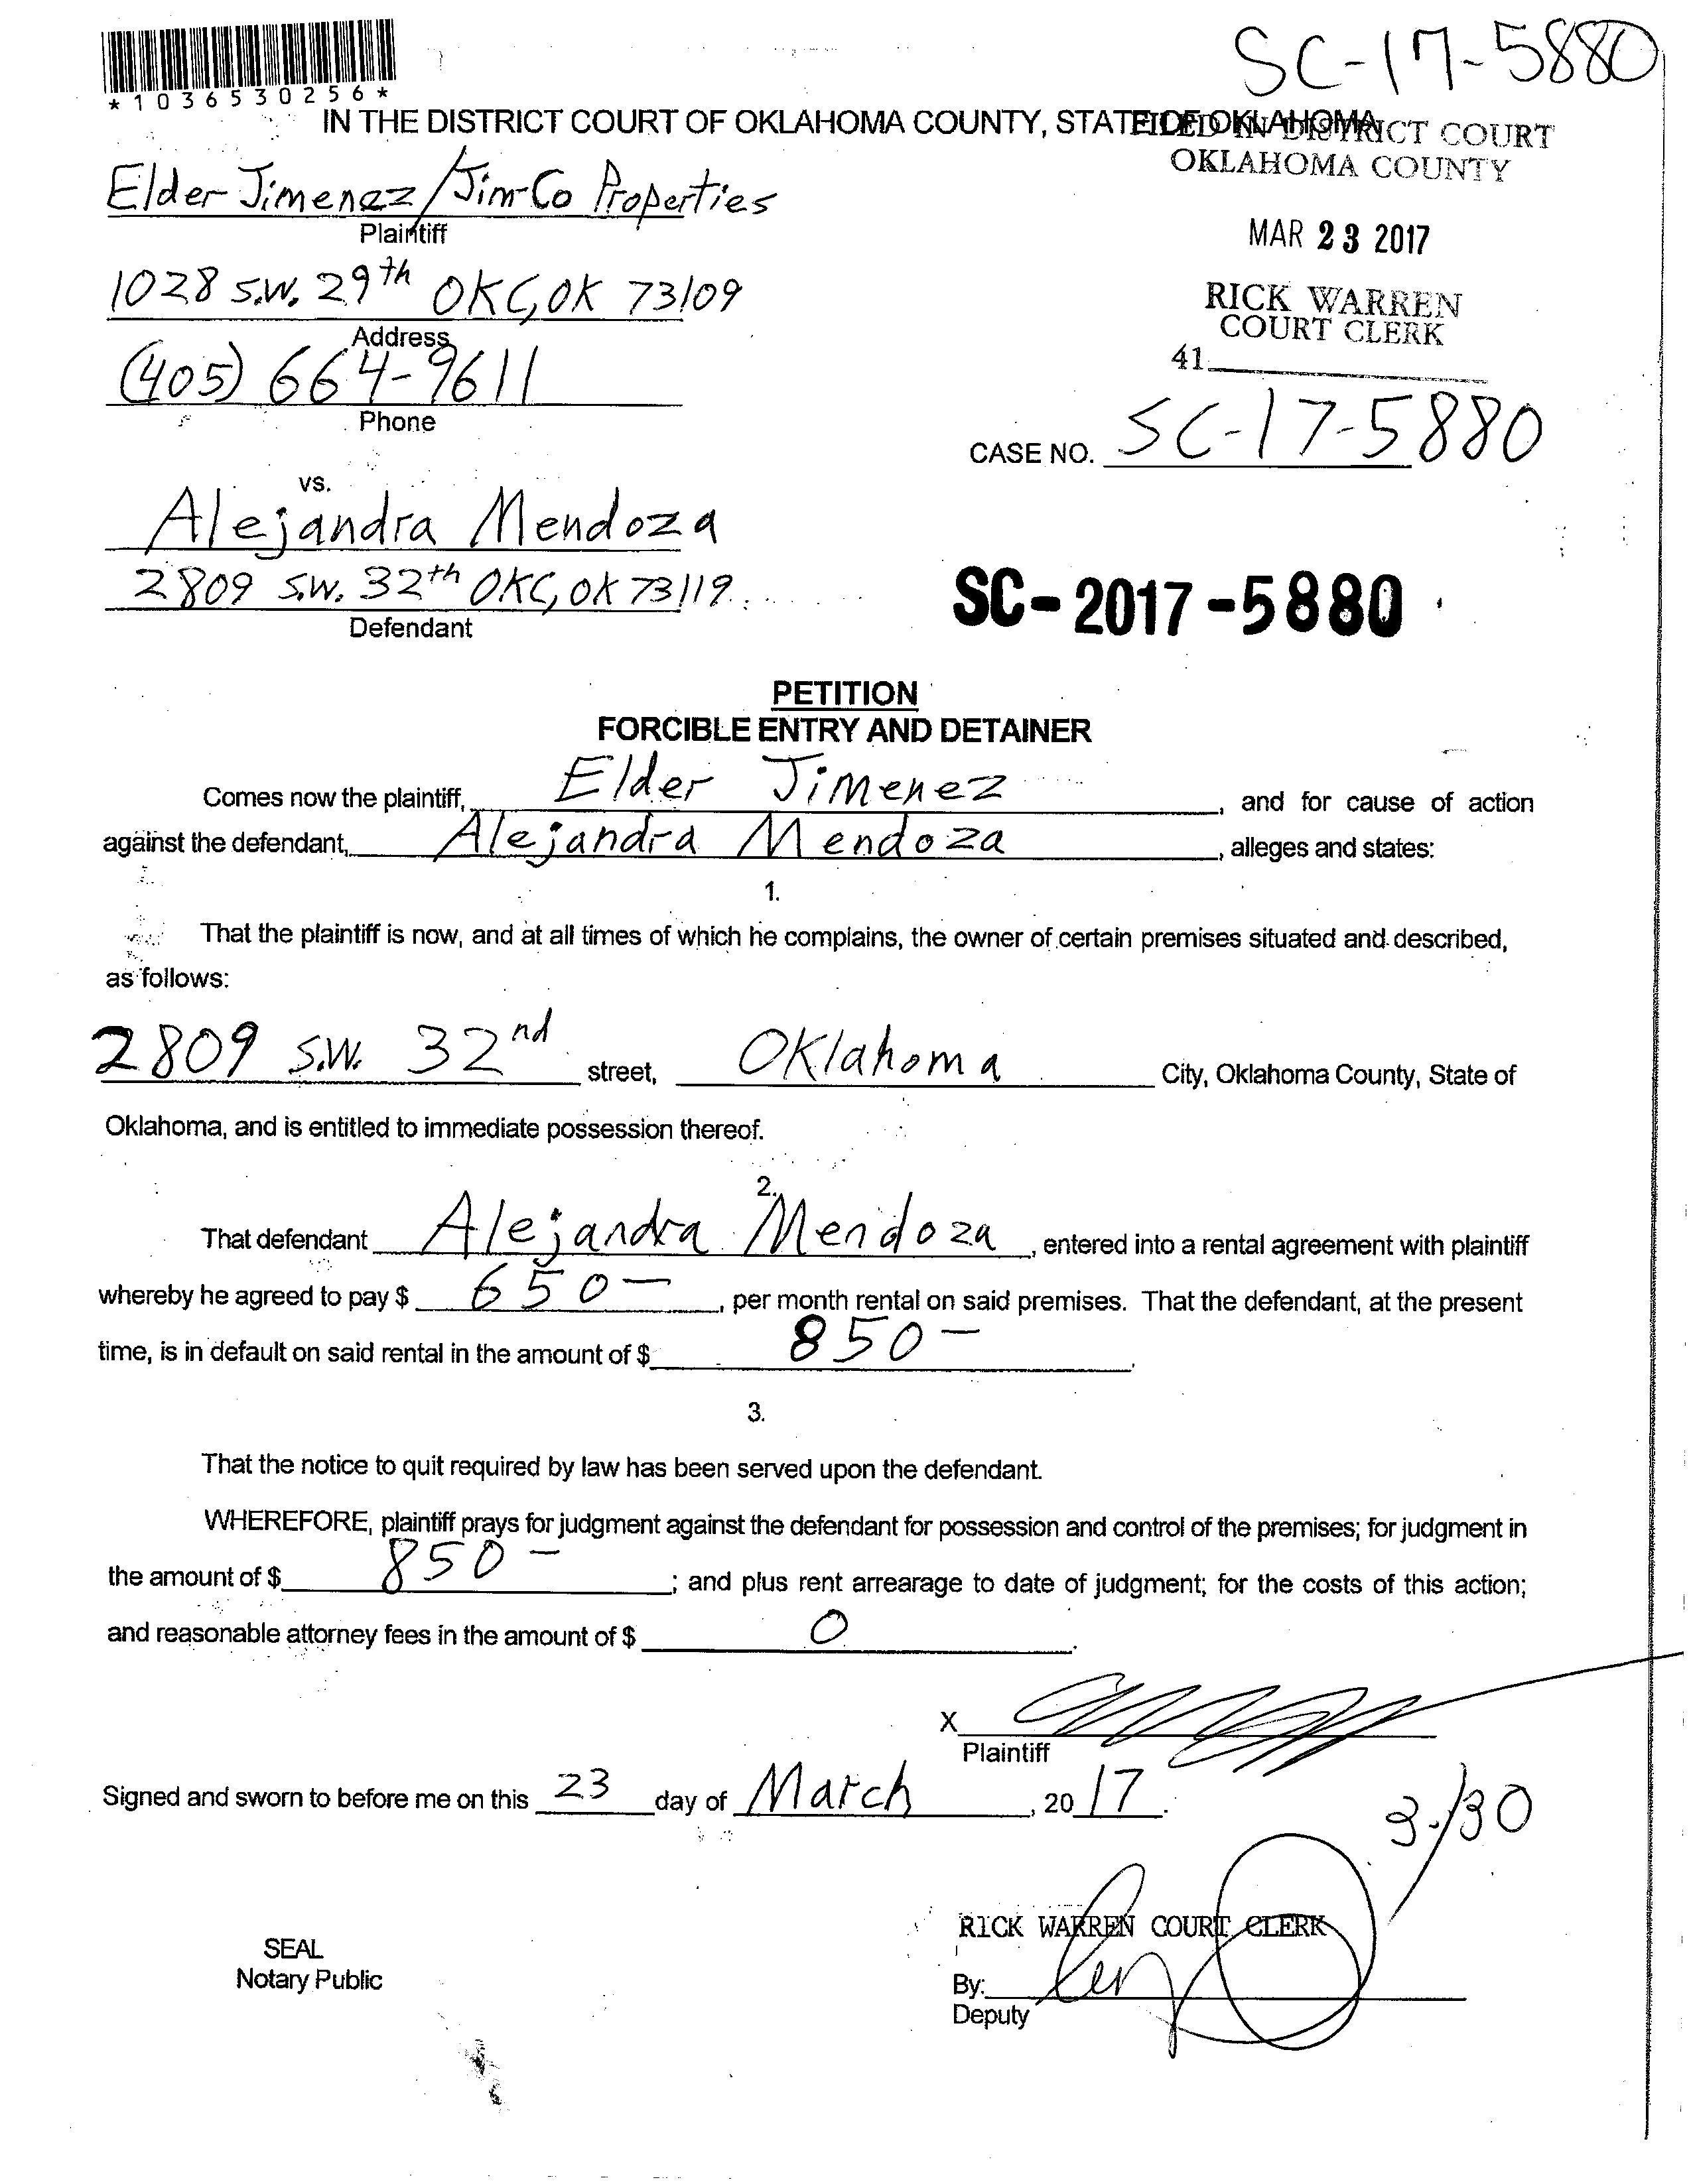 SC-17-5880
*1036530256*
IN THE DISTRICT COURT OF OKLAHOMA COUNTY, STATE OF OKLAHOMA
FILED IN DISTRICT COURT
OKLAHOMA COUNTY
Elder Jimenez/Jim-Co Properties
Plaintiff
MAR 23 2017
1028 S.W. 29th OKC, OK 73109
Address
RICK WARREN
COURT CLERK
41
(405) 664-9611
Phone
CASE NO. SC-17-5880
vs.
Alejandra Mendoza
2809 S.W. 32th OKC, OK 73119
Defendant
SC-2017-5880
PETITION
FORCIBLE ENTRY AND DETAINER
Comes now the plaintiff, Elder Jimenez, and for cause of action
against the defendant, Alejandra Mendoza, alleges and states:
1.
That the plaintiff is now, and at all times of which he complains, the owner of certain premises situated and described,
as follows:
2809 S.W. 32nd street, Oklahoma City, Oklahoma County, State of
Oklahoma, and is entitled to immediate possession thereof.
2.
That defendant Alejandra Mendoza, entered into a rental agreement with plaintiff
whereby he agreed to pay $ 650-, per month rental on said premises. That the defendant, at the present
time, is in default on said rental in the amount of $ 850-.
3.
That the notice to quit required by law has been served upon the defendant.
WHEREFORE, plaintiff prays for judgment against the defendant for possession and control of the premises; for judgment in
the amount of $ 850-; and plus rent arrearage to date of judgment; for the costs of this action;
and reasonable attorney fees in the amount of $ 0.
X
Plaintiff
Signed and sworn to before me on this 23 day of March, 2017.
3/30
RICK WARREN COURT CLERK
SEAL
Notary Public
By:
Deputy